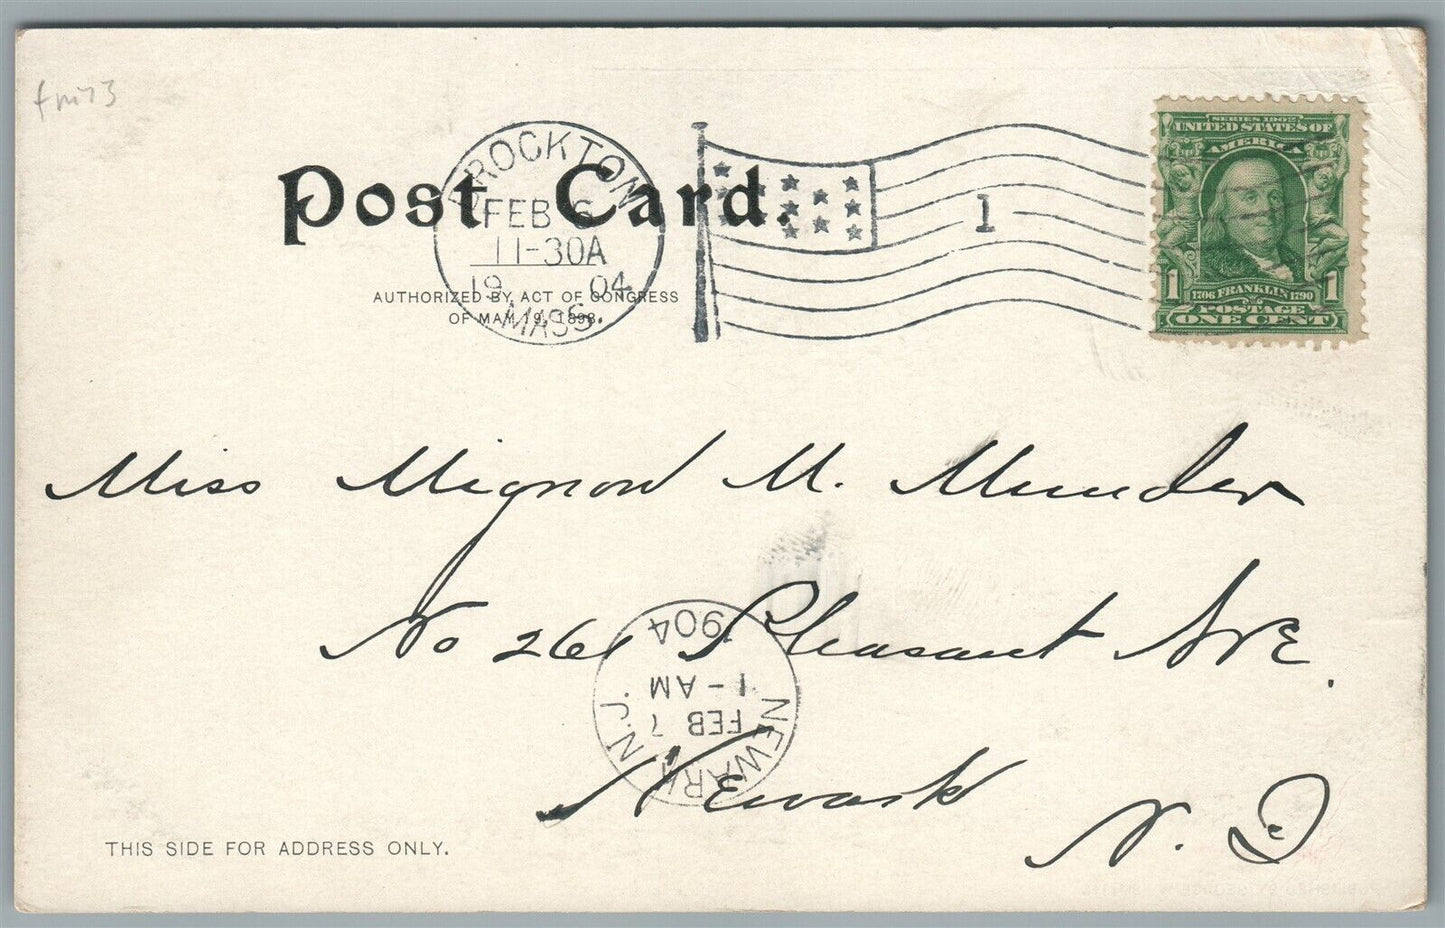 fm73
BROCKTON
FEB 6
11-30A
1904
MASS.
1
SERIES 1902
UNITED STATES OF
AMERICA
1 1706 FRANKLIN 1790 1
POSTAGE
ONE CENT
Post Card.
AUTHORIZED BY ACT OF CONGRESS
OF MAY 19, 1898.
Miss Mignon M. Munder
No 266 Pleasant AVE.
Newark
N. J
NEWARK N.J.
FEB 7
1-AM
1904
THIS SIDE FOR ADDRESS ONLY.